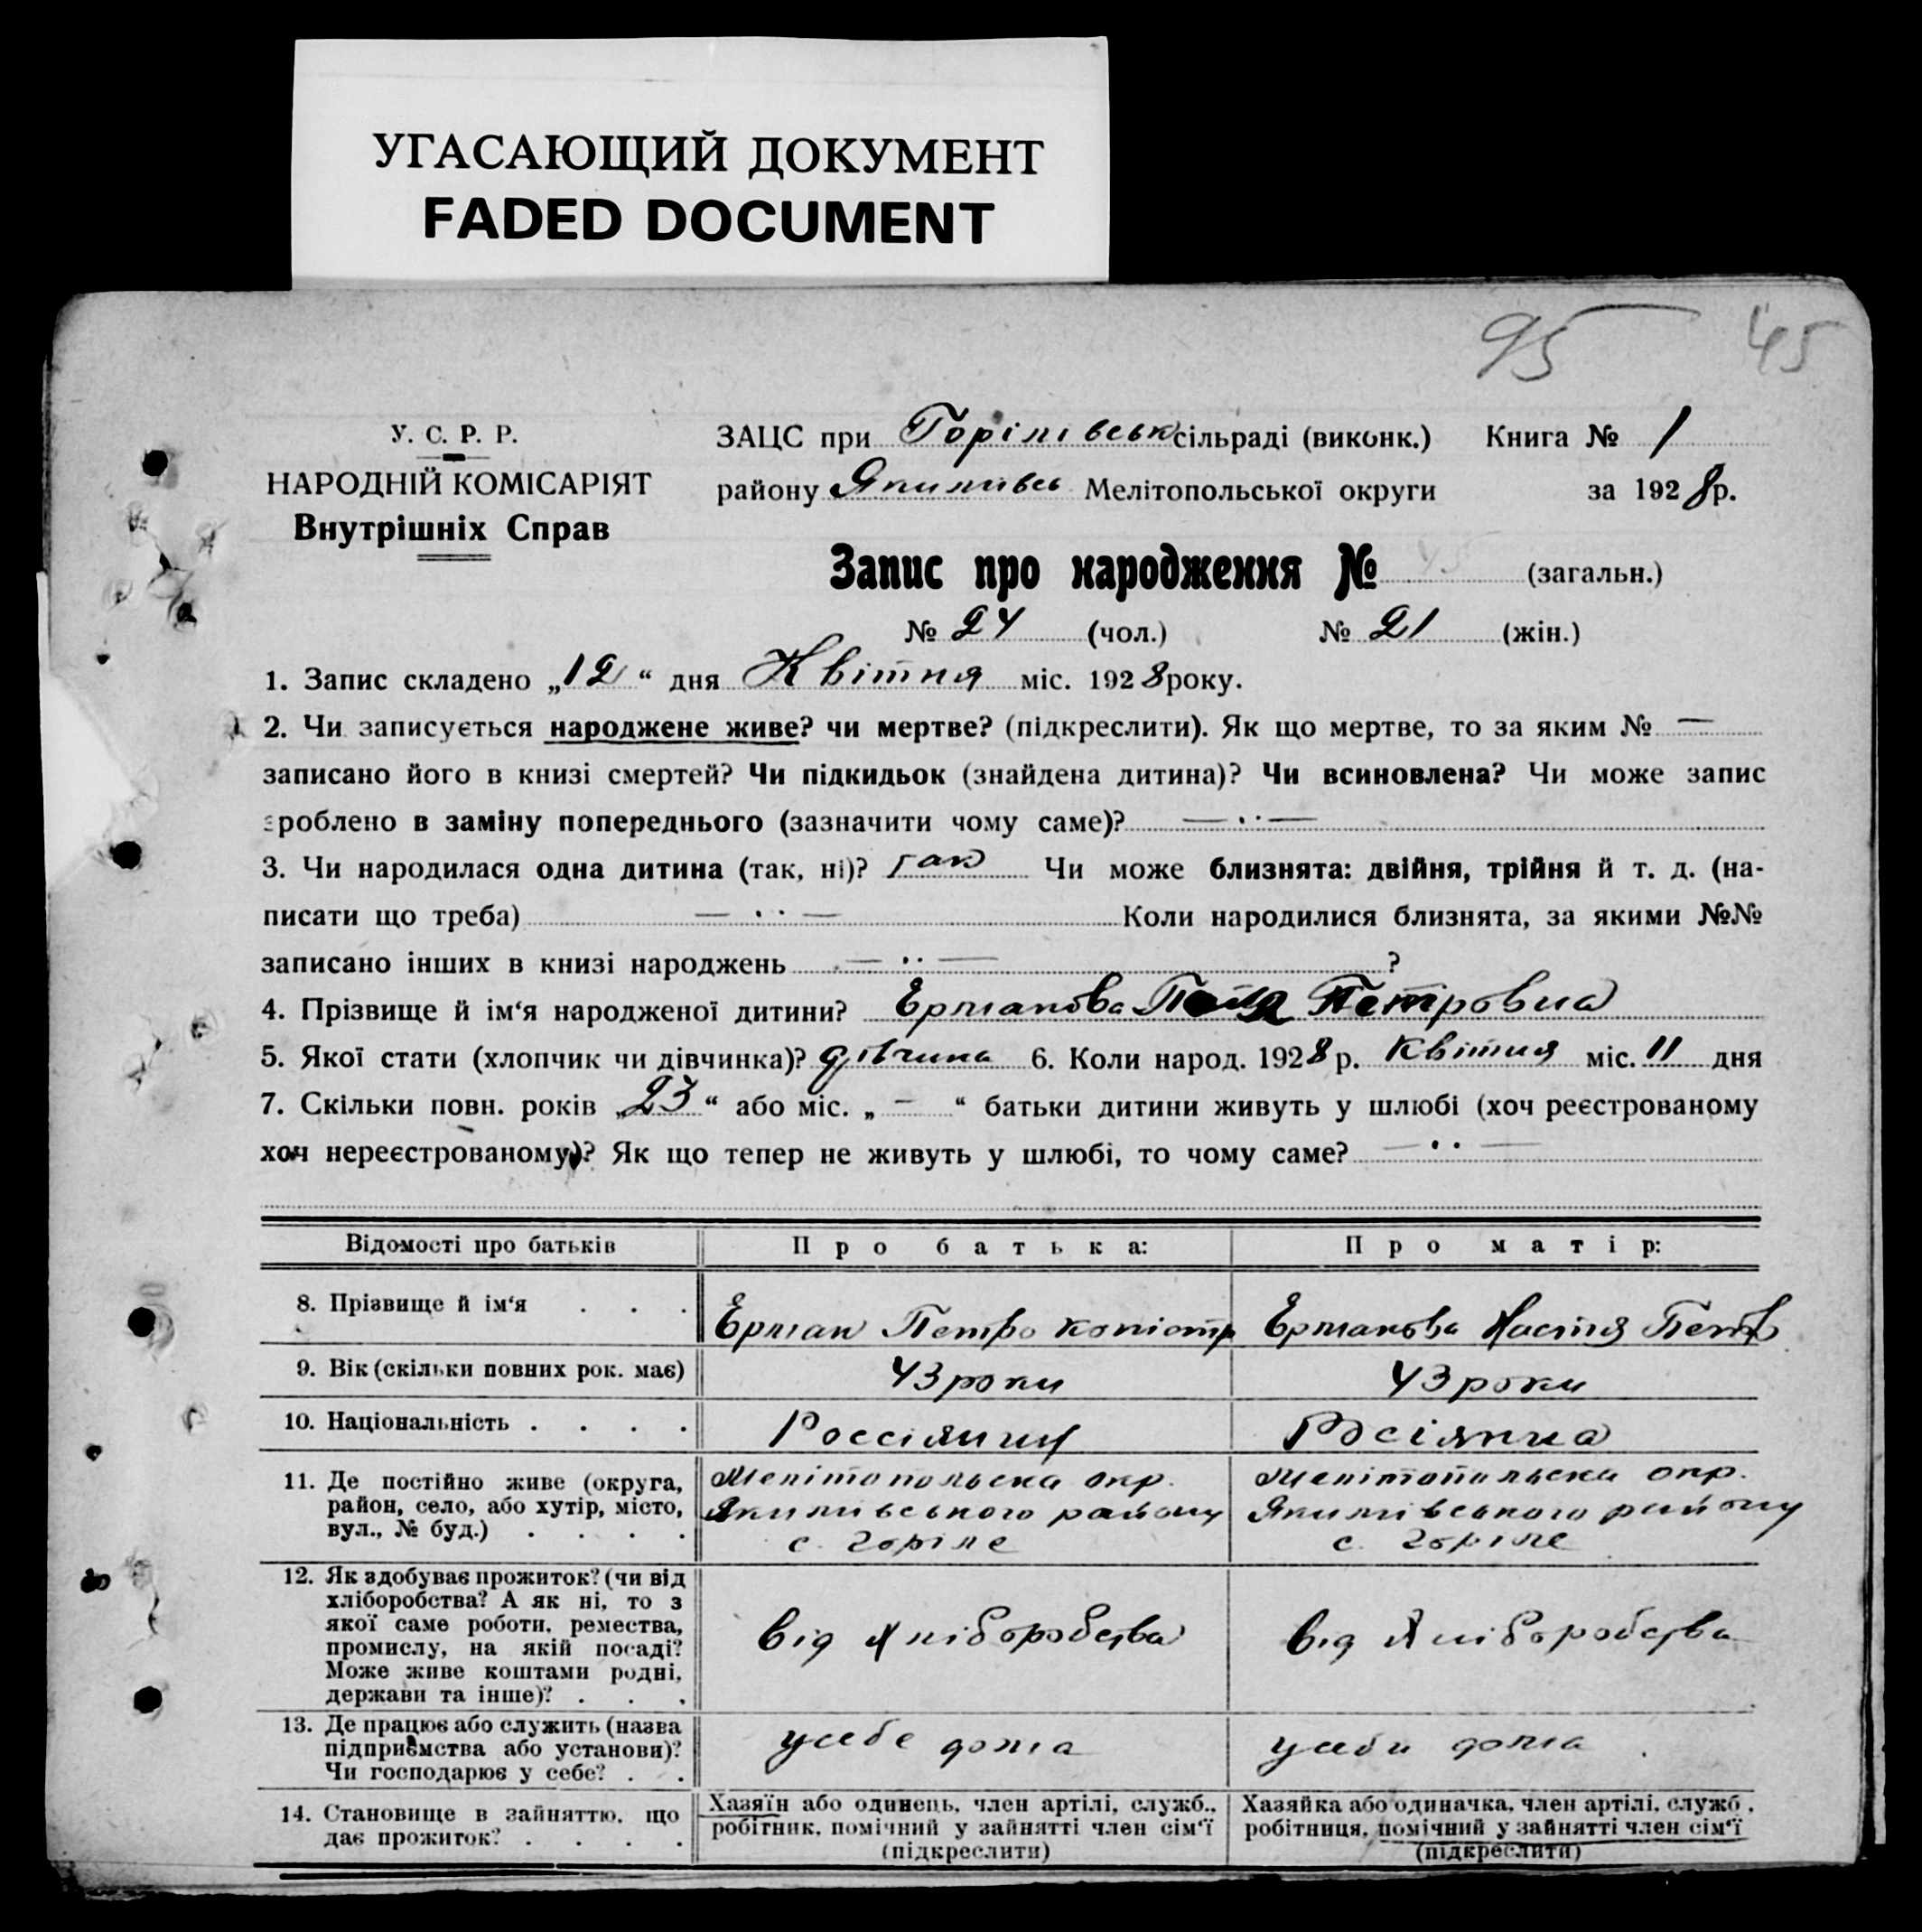 УГАСАЮЩИЙ ДОКУМЕНТ
FADED DOCUMENT
95 45
У. С. Р. Р.
НАРОДНІЙ КОМІСАРІЯТ
Внутрішніх Справ
ЗАЦС при Горілівськ сільраді (виконк.) Книга № 1
району Якимівсь Мелітопольської округи за 1928 р.
Запис про народження № 45 (загальн.)
№ 24 (чол.) № 21 (жін.)
1. Запис складено „12“ дня Квітня міс. 1928 року.
2. Чи записується народжене живе? чи мертве? (підкреслити). Як що мертве, то за яким № —
записано його в книзі смертей? Чи підкидьок (знайдена дитина)? Чи всиновлена? Чи може запис
зроблено в заміну попереднього (зазначити чому саме)?
3. Чи народилася одна дитина (так, ні)? так Чи може близнята: двійня, трійня й т. д. (на-
писати що треба) Коли народилися близнята, за якими №№
записано інших в книзі народжень ?
4. Прізвище й ім‘я народженої дитини? Ермакова Петровна
5. Якої стати (хлопчик чи дівчинка)? дівчина 6. Коли народ. 1928 р. Квітня міс. 11 дня
7. Скільки повн. років „23“ або міс. „ - “ батьки дитини живуть у шлюбі (хоч реєстрованому
хоч нереєстрованому)? Як що тепер не живуть у шлюбі, то чому саме?
Відомості про батьків Про батька: Про матір:
8. Прізвище й ім‘я . . . Ермак Петро Ермакова Настя Петр
9. Вік (скільки повних рок. має) 43 роки 43 роки
10. Національність . . . . Россіянин Росіянка
11. Де постійно живе (округа,
район, село, або хутір, місто,
вул., № буд.) . . . .
Мелітопольска окр.
Якимівського району
с. Горіле
Мелітопольска окр.
Якимівського району
с. Горіле
12. Як здобуває прожиток? (чи від
хліборобства? А як ні, то з
якої саме роботи, ремества,
промислу, на якій посаді?
Може живе коштами родні,
держави та інше)? . . .
від хліборобства від хліборобства
13. Де працює або служить (назва
підприємства або установи)?
Чи господарює у себе? . .
у себе дома у себи дома
14. Становище в зайняттю, що
дає прожиток? . . . .
Хазяїн або одинець, член артілі, служб.,
робітник, помічний у зайнятті член сім‘ї
(підкреслити)
Хазяйка або одиначка, член артілі, служб.,
робітниця, помічний у зайнятті член сім‘ї
(підкреслити)